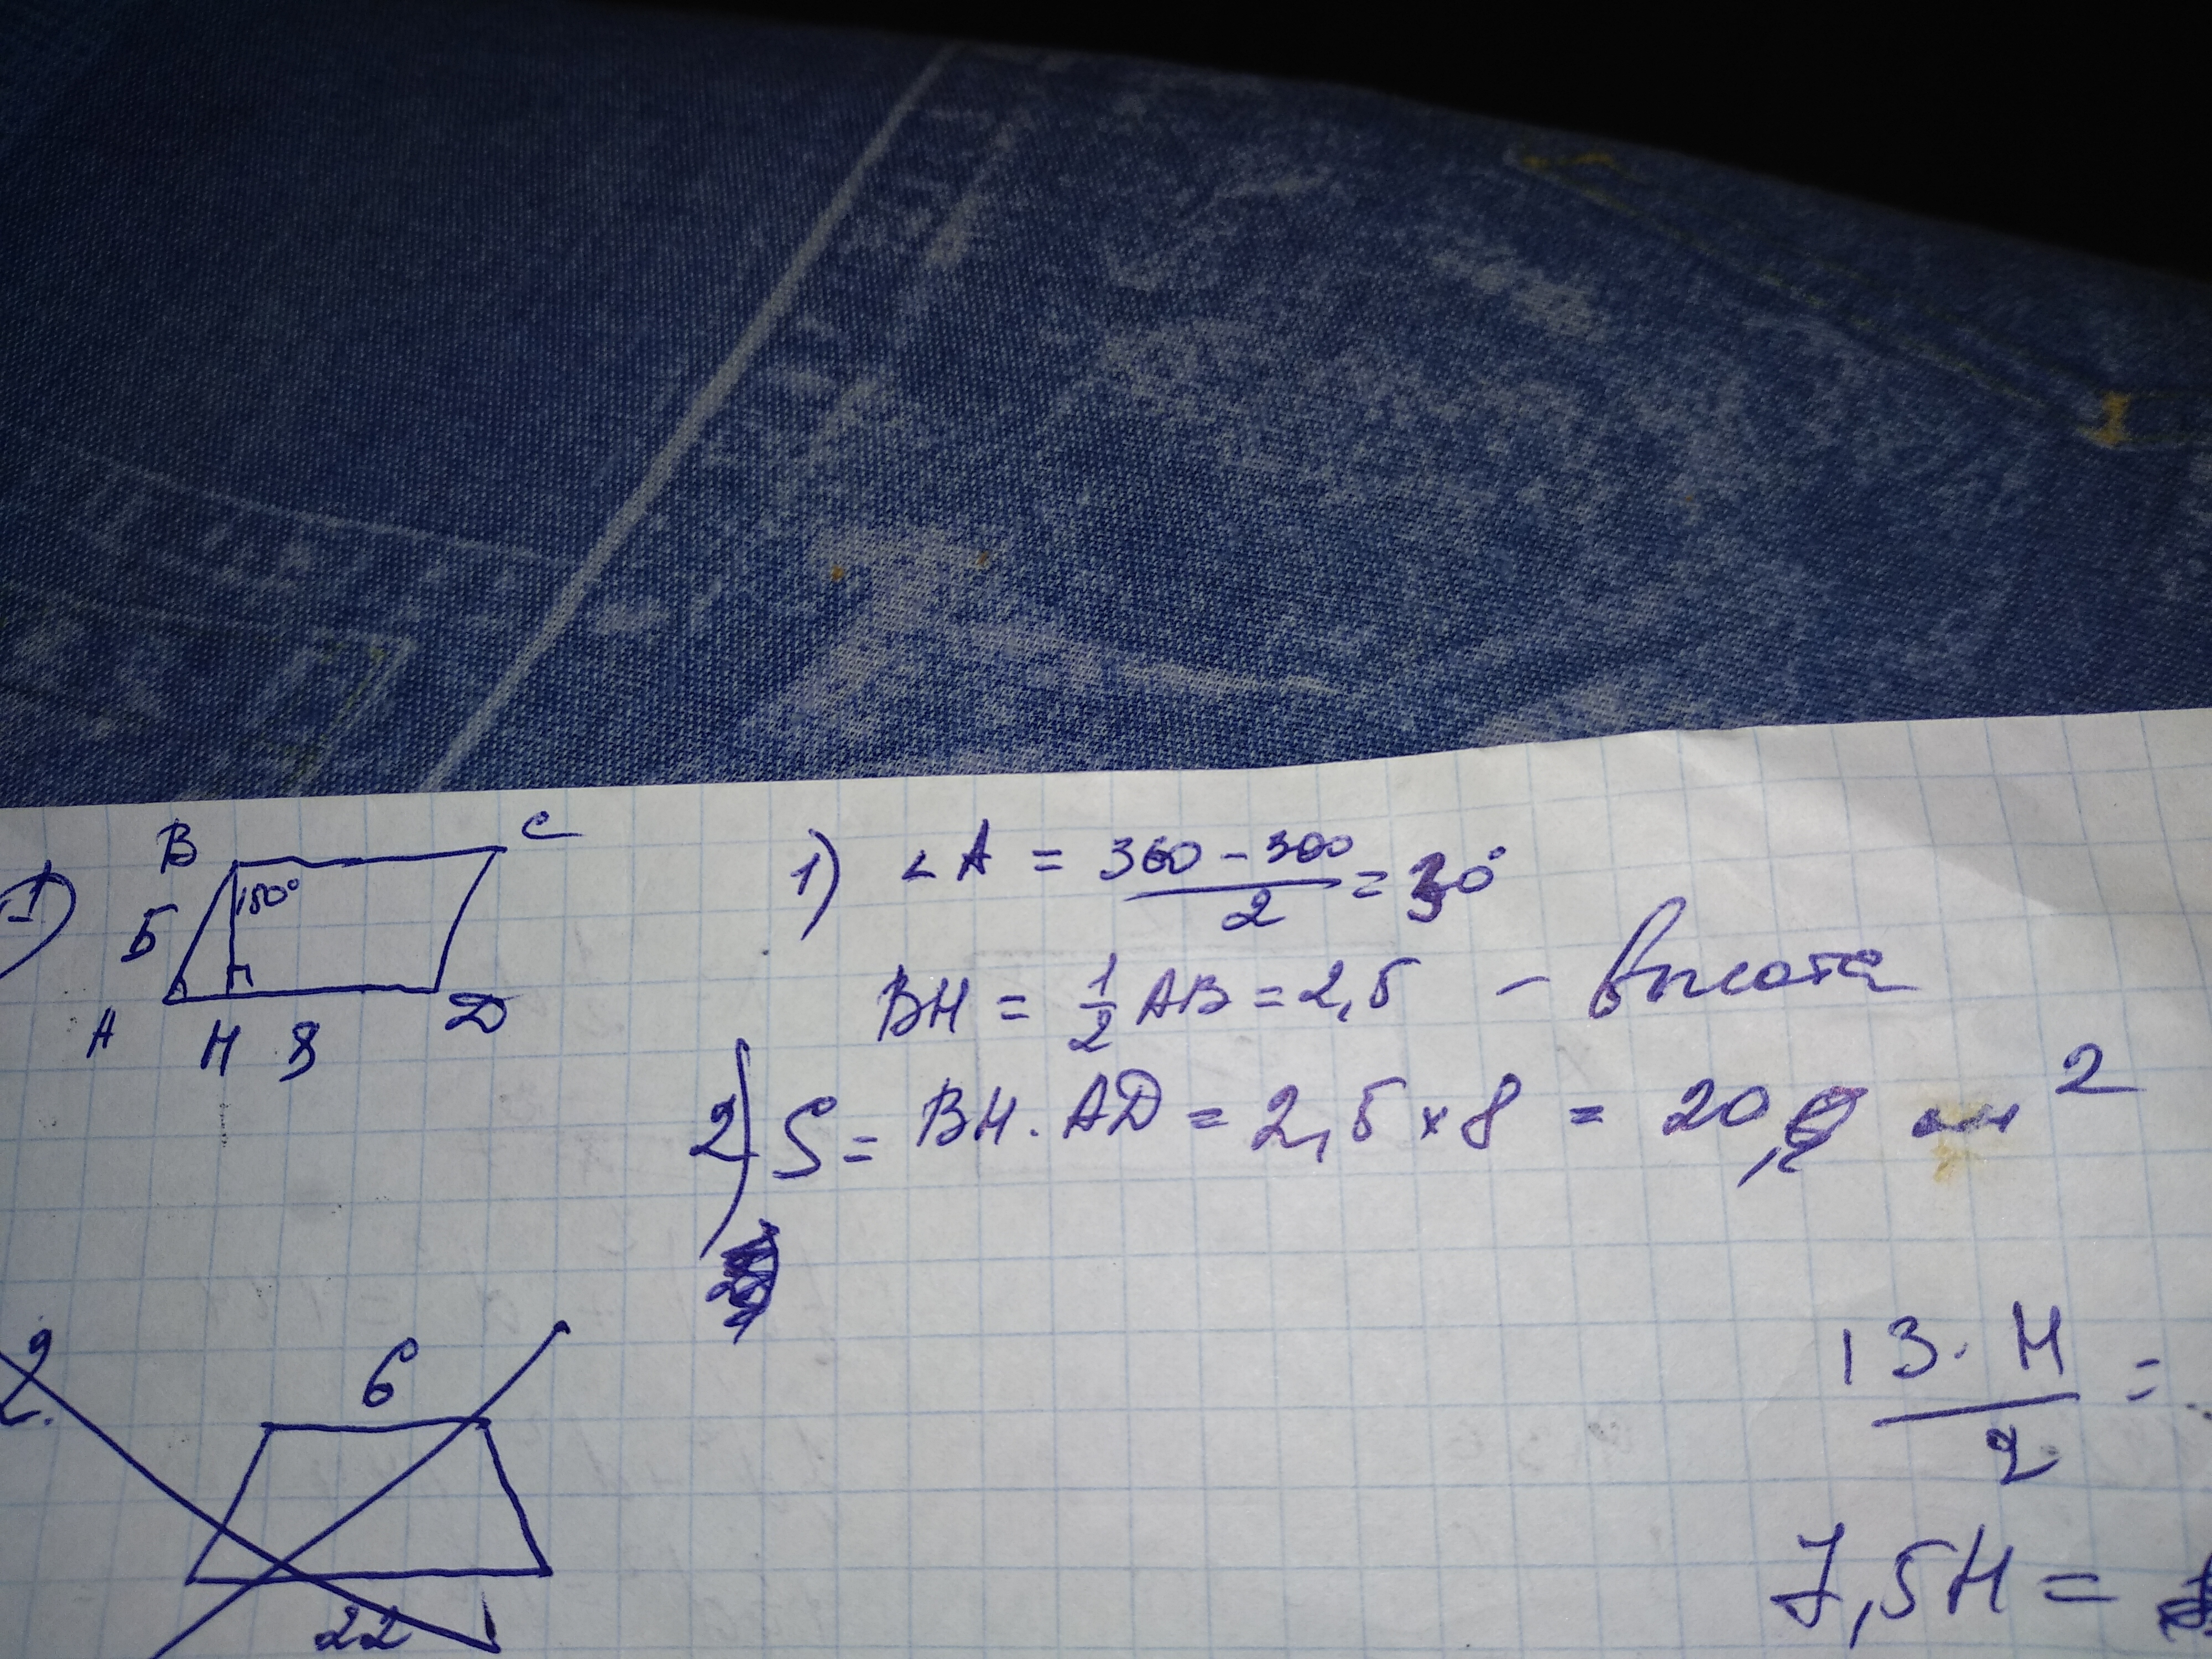 1)
B C
150°
5
A H 8 D
1) ∠A = (360 - 300)/2 = 30°
BH = 1/2 AB = 2,5 - высота
2) S = BH · AD = 2,5 × 8 = 20 см²
2.
6
22
13 · H / 2 =
7,5H =